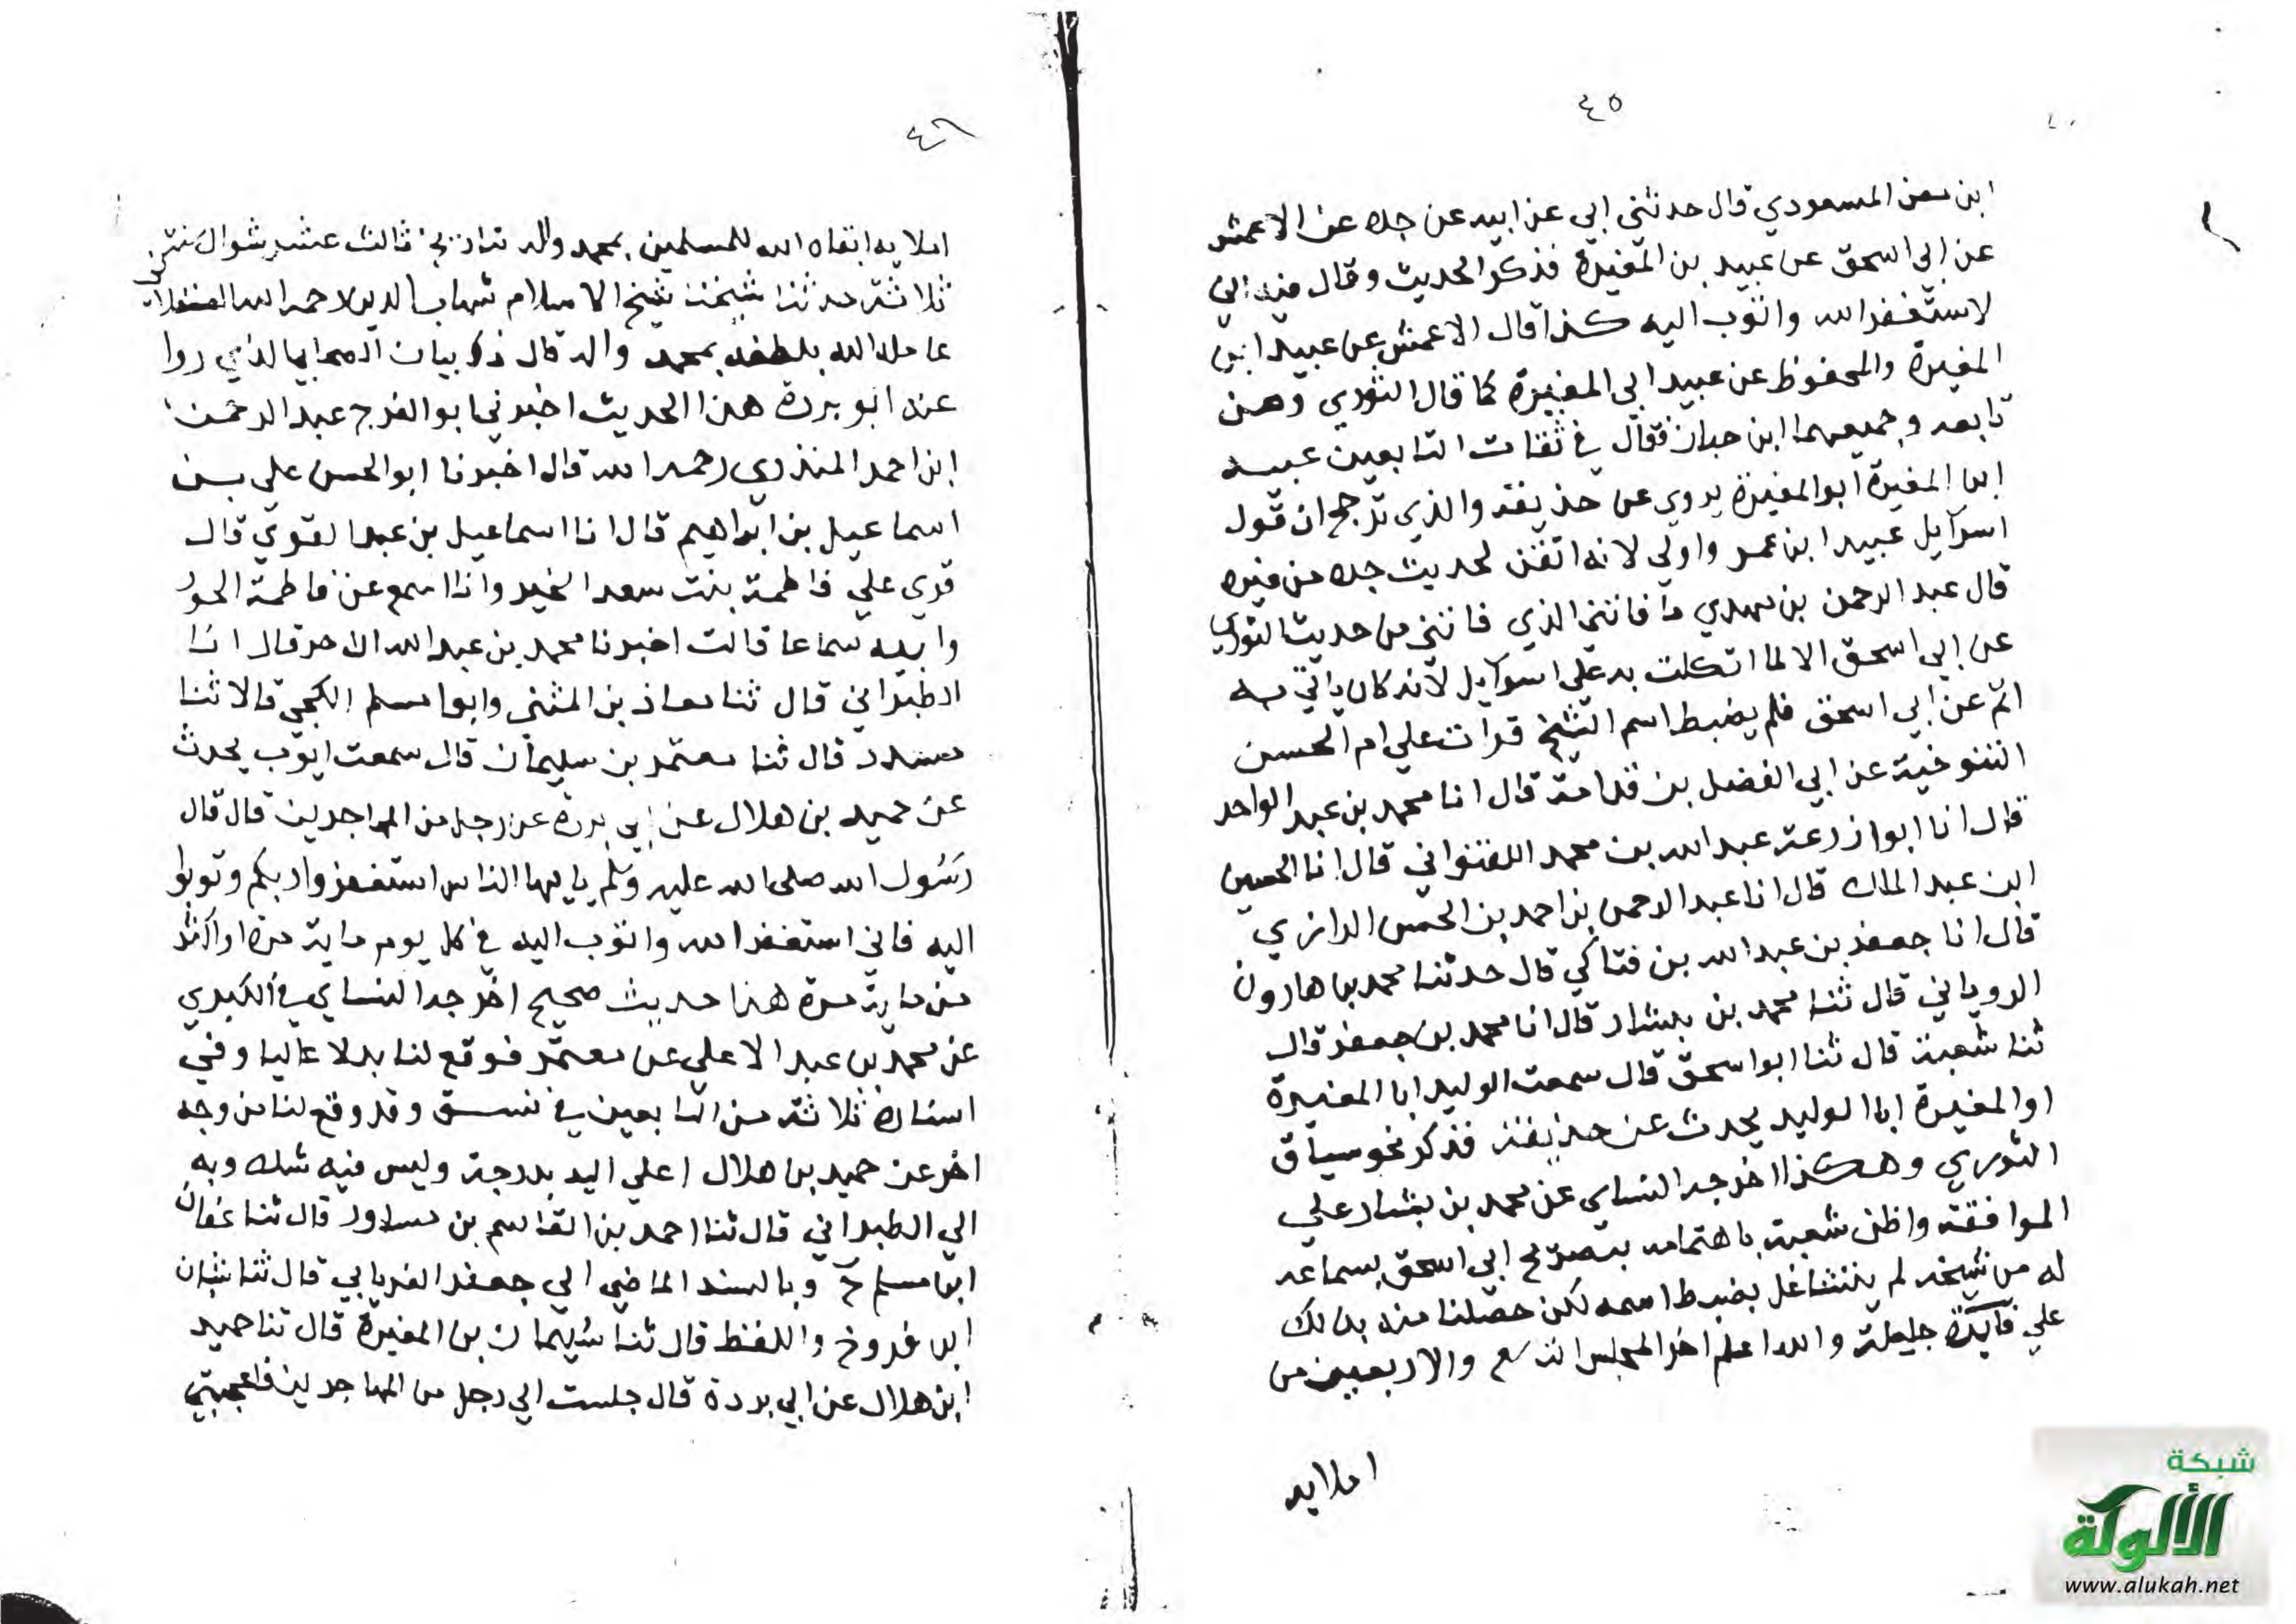 ٤٥
ابن معن المسعودي قال حدثني ابي عن ابيه عن جده عن الاعمش
عن ابي اسحق عن عبيد بن المغيرة فذكر الحديث وقال فيه اني
لاستغفر الله واتوب اليه كذا قال الاعمش عن عبيد ابن
المغيرة والمحفوظ عن عبيد ابي المغيرة كما قال الثوري ومن
تابعه وجميعهما ابن حبان فقال في ثقات التابعين عبيد
ابن المغيرة ابو المغيرة يروي عن حذيفة والذي ترجح ان قول
اسرايل عبيد ابن عمرو اولي لانه اتقن لحديث جده من غيره
قال عبد الرحمن بن مهدي ما فاتني الذي فاتني من حديث الثوري
عن ابي اسحق الا لما اتكلت به علي اسرايل لانه كان ياتي به
اتم عن ابي اسحق فلم يضبط اسم الشيخ قرات علي ام الحسن
التنوخية عن ابي الفضل بن قدامة قال انا محمد بن عبد الواحد
قال انا ابوا زرعة عبد الله بن محمد اللفتواني قال انا الحسين
ابن عبد الملك قال انا عبد الرحمن بن احمد بن الحسن الرازي
قال انا جعفر بن عبد الله بن فناكي قال حدثنا محمد بن هارون
الروياني قال ثنا محمد بن بشار قال انا محمد بن جعفر قال
ثنا شعبة قال ثنا ابوا سحق قال سمعت الوليد ابا المغيرة
او المغيرة ابا الوليد يحدث عن حذيفة فذكر نحو سياق
الثوري وهكذا اخرجه النساي عن محمد بن بشار علي
الموافقة واظن شعبة باهتمامه بتصريح ابي اسحق بسماعه
له من شيخه لم يتشاغل بضبط اسمه لكن حصلنا منه بذلك
علي فايدة جليلة والله اعلم اخر المجلس التاسع والاربعين من
املايه
٤٦
املايه ابقاه الله للمسلمين بمحمد واله بتاريخ ثالث عشر شوال سنة
ثلاثة حدثنا شيخنا شيخ الاسلام شهاب الدين احمد العسقلاني
عامله الله بلطفه بمحمد واله قال ذكر بيان الصحابي الذي روا
عنه ابو بردة هذا الحديث اخبرني ابو الفرج عبد الرحمن
ابن احمد المنذري رحمه الله قال اخبرنا ابو الحسن علي بن
اسماعيل بن ابراهيم قال انا اسماعيل بن عبد القوي قال
قري علي فاطمة بنت سعد الخير وانا اسمع عن فاطمة الجوز
وانيه سماعا قالت اخبرنا محمد بن عبد الله الاحد قال انا
الطبراني قال ثنا معاذ بن المثني وابوا مسلم الكجي قالا ثنا
مسدد قال ثنا معتمر بن سليمان قال سمعت ايوب يحدث
عن حميد بن هلال عن ابي بردة عن رجل من المهاجرين قال قال
رسول الله صلي الله عليه وسلم يا ايها الناس استغفروا ربكم وتوبوا
اليه فاني استغفر الله واتوب اليه في كل يوم ماية مرة او اكثر
من ماية مرة هذا حديث صحيح اخرجه النساي في الكبري
عن محمد بن عبد الاعلي عن معتمر فوقع لنا بدلا عاليا وفي
اسناده ثلاثة من التابعين في نسق وقد وقع لنا من وجه
اخر عن حميد بن هلال اعلي اليه بدرجة وليس فيه شك وبه
الي الطبراني قال ثنا احمد بن القاسم بن مساور قال ثنا عفان
ابن مسلم ح وبالسند الماضي الي جعفر الفريابي قال ثنا شيبان
ابن فروخ واللفظ قال ثنا سليمان بن المغيرة قال ثنا حميد
ابن هلال عن ابي بردة قال جلست الي رجل من المهاجرين فاعجبني
شبكة
الألوكة
www.alukah.net